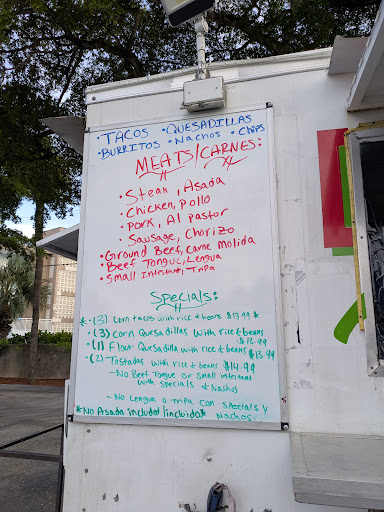 • TACOS • QUESADILLAS
• BURRITOS • Nachos • Chips
MEATS/CARNES:
• Steak, Asada
• Chicken, Pollo
• Pork, Al pastor
• Sausage, Chorizo
• Ground Beef, Carne Molida
• Beef Tongue, Lengua
• Small Intestant, Tripa
Specials:
* • (3) Corn tacos with rice & beans $13.99 *
• (3) Corn Quesadillas with rice & beans
$13.99
• (1) Flour Quesadilla with rice & beans $13.99
• (2) Tostadas with rice & beans $14.99
- No Beef Tongue or small intestant
with specials & Nachos
- No Lengua o tripa con specials y
Nachos.
*No Asada included/incluido*